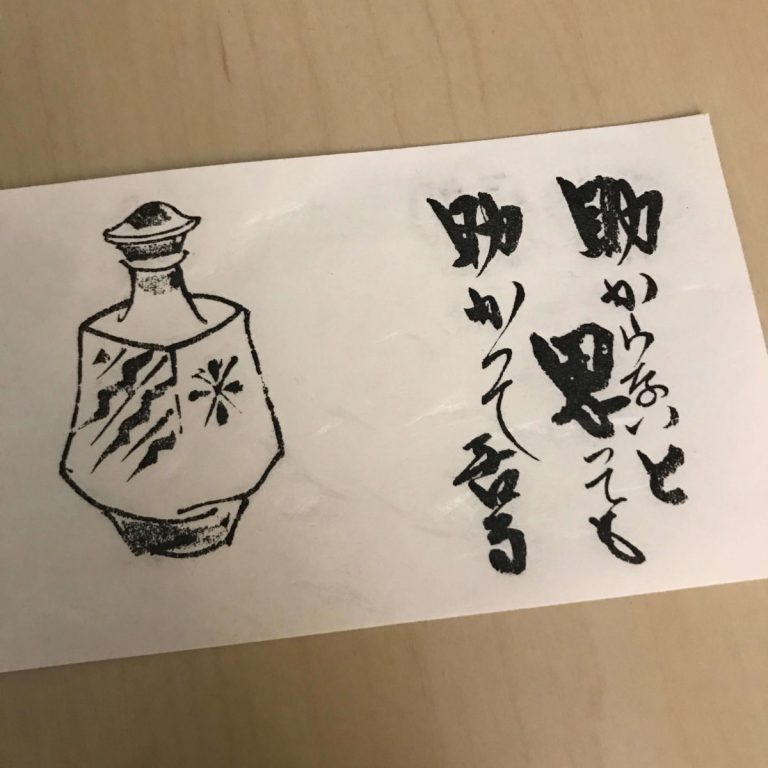 助からないと
思っても
助かって居る